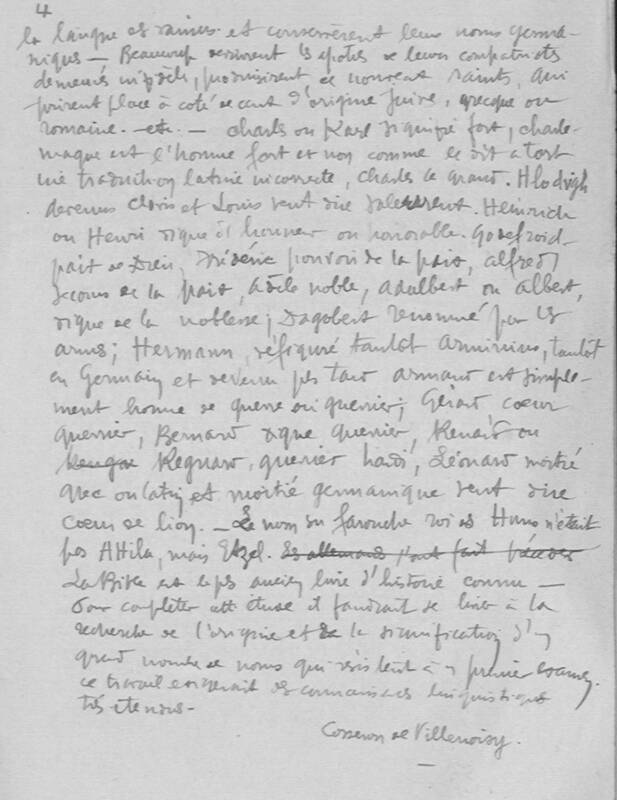 4
la langue des vaincus et conservèrent leurs noms germa-
niques — Beaucoup devinrent les apôtres de leurs compatriotes
demeurés infidèles, produisirent de nouveaux saints, qui
prirent place à coté de ceux d'origine juive, grecque ou
romaine. etc. — Charles ou Karl signifie fort, charle-
magne est l'homme fort et non comme le dit a tort
une traduction latine incorrecte, Charles le grand. Hlodwigh
devenu Clovis et Louis veut dire Heinrich
ou Henri digne d'honneur ou honorable. Godefroid
paix de Dieu, Frédéric pouvoir de la paix, alfred
secours de la paix, adèle noble, adalbert ou albert,
digne de la noblesse; Dagobert renommé par les
armes; Hermann, défiguré tantôt arminius, tantôt
en Germain et devenu plus tard armand est simple-
ment homme de guerre ou guerrier; Gérard cœur
guerrier, Bernard digne guerrier, Renard ou
Regnard, guerrier hardi, Léonard moitié
grec ou latin et moitié germanique veut dire
cœur de lion. — Le nom du farouche roi des Huns n'était
pas Attila, mais Etzel. Les allemands l'ont fait
La Bible est le plus ancien livre d'histoire connu —
Pour compléter cette étude il faudrait se livrer à la
recherche de l'origine et de la signification d'un
grand nombre de noms qui résistent à un premier examen.
ce travail exigerait des connaissances linguistiques
très étendues.
Cosseron de Villenoisy.